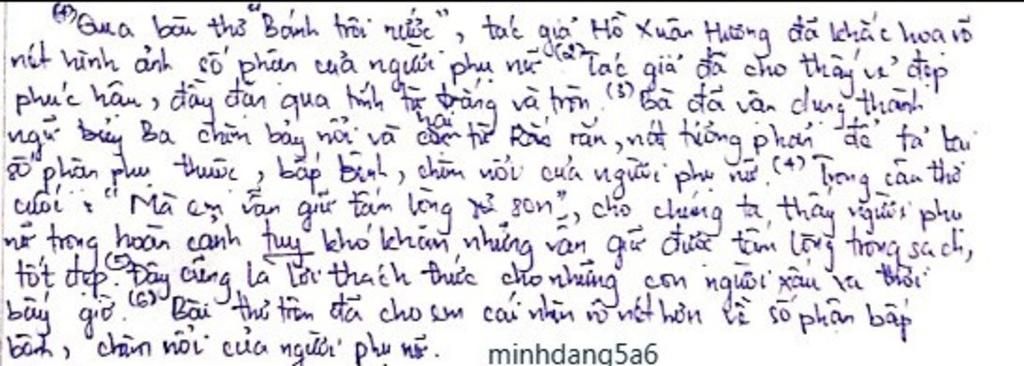 (1) Qua bài thơ "Bánh trôi nước", tác giả Hồ Xuân Hương đã khắc hoạ rõ
nét hình ảnh số phận của người phụ nữ (2) Tác giả đã cho thấy vẻ đẹp
phúc hậu, đầy đặn qua tính từ trắng và tròn. (3) Bà đã vận dụng thành
ngữ Ba chìm bảy nổi và hai từ rắn, nát tưởng phản để tả lại
số phận phụ thuộc, bấp bênh, chìm nổi của người phụ nữ. (4) Trong câu thơ
cuối: "Mà em vẫn giữ tấm lòng son", cho chúng ta thấy người phụ
nữ trong hoàn cảnh tuy khó khăn nhưng vẫn giữ được tấm lòng trong sạch,
tốt đẹp. (5) Đây cũng là lời thách thức cho những con người xấu xa thời
bấy giờ. (6) Bài thơ trên đã cho em cái nhìn rõ nét hơn về số phận bấp
bênh, chìm nổi của người phụ nữ.
minhdang5a6